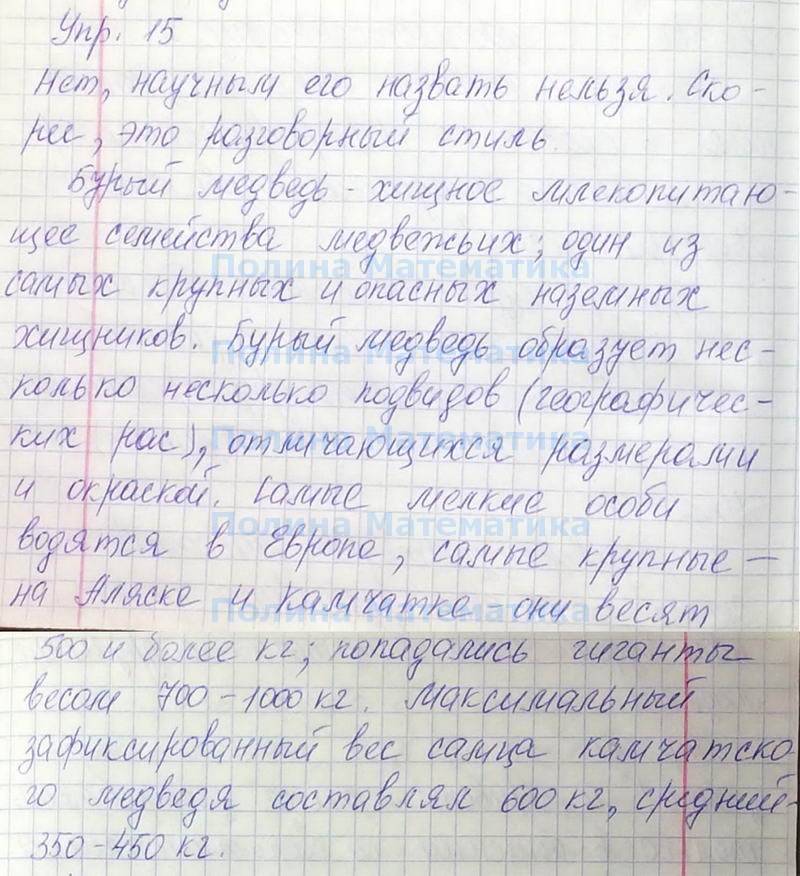 Упр. 15
Нет, научным его назвать нельзя. Ско-
рее, это разговорный стиль.
Бурый медведь - хищное млекопитаю-
щее семейства медвежьих; один из
Полина Математика
самых крупных и опасных наземных
хищников. Бурый медведь образует нес-
Полина Математика
колько несколько подвидов (географичес-
ких рас), отличающихся размерами
Полина Математика
и окраской. Самые мелкие особи
Полина Математика
водятся в Европе, самые крупные —
на Аляске и Камчатке - они весят
Полина Математика
500 и более кг; попадались гиганты
весом 700-1000 кг. Максимальный
зафиксированный вес самца камчатско
го медведя составлял 600 кг, средний-
350-450 кг.